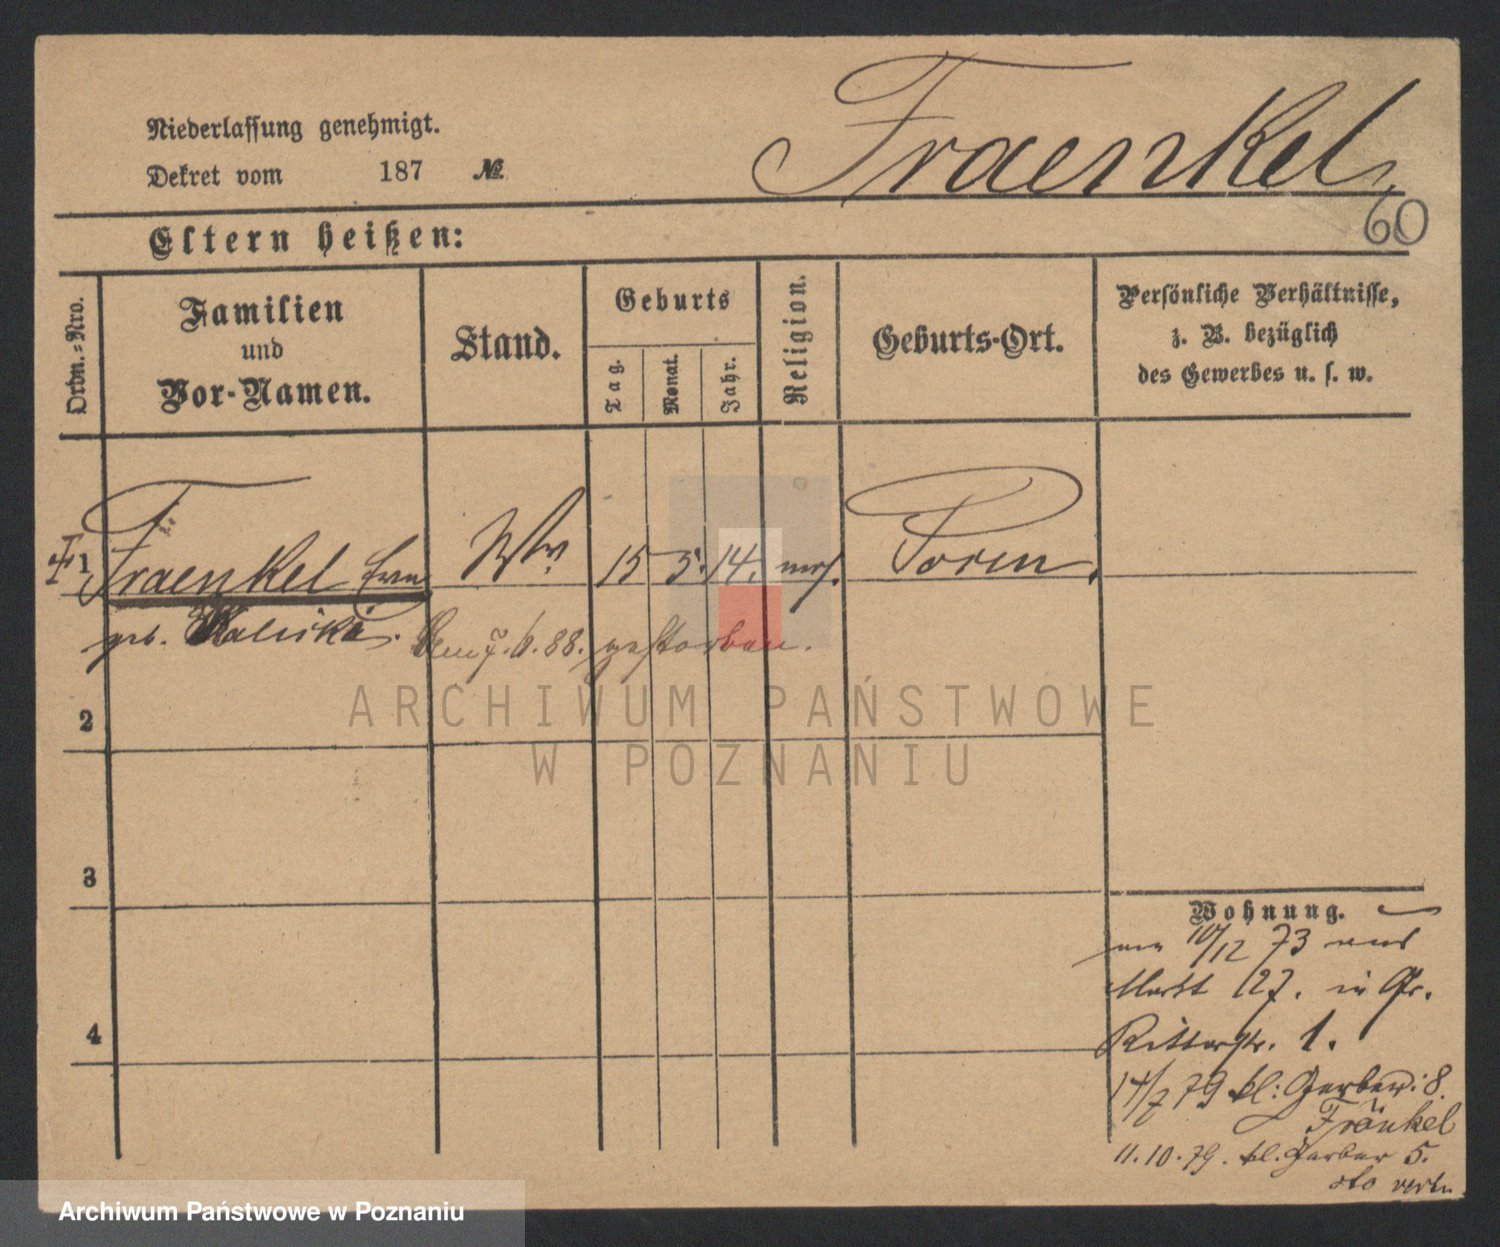 Fraenkel
Niederlassung genehmigt.
Dekret vom 187 №
60
Eltern heißen:
Ordn.=Nro.
Familien
und
Vor-Namen.
Stand.
Geburts
Tag.
Monat.
Jahr.
Religion.
Geburts-Ort.
Persönliche Verhältnisse,
z. B. bezüglich
des Gewerbes u. s. w.
1 Fraenkel Wwe 15 5. 14. mos. Posen
geb. Kaliski. 6. 88. gestorben.
2
3
4
Wohnung.
10/12 73 aus
Markt 127. in Gr.
Ritterstr. 1.
14/7 79 kl: Gerber: 8.
Fränkel
11. 10. 79. kl. Gerber 5.
ARCHIWUM PAŃSTWOWE
W POZNANIU
Archiwum Państwowe w Poznaniu